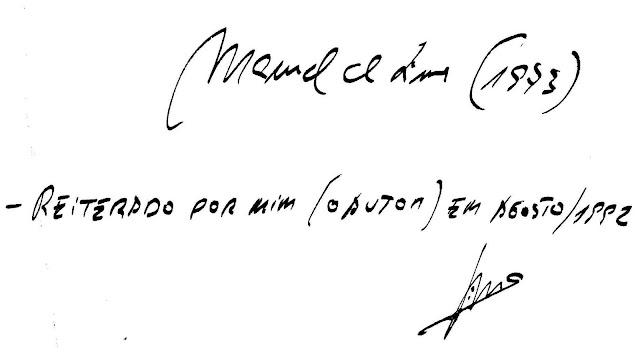 Manuel de Lima (1973)
- REITERADO POR MIM (O AUTOR) EM AGOSTO/1992